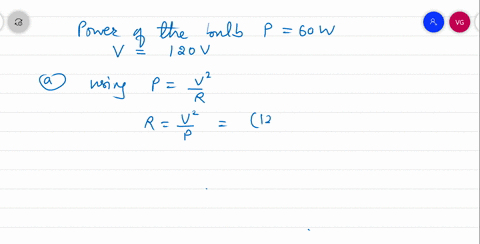 Power of the bulb P = 60W
V = 120V
(a) using P = V²/R
R = V²/P = (12
VG